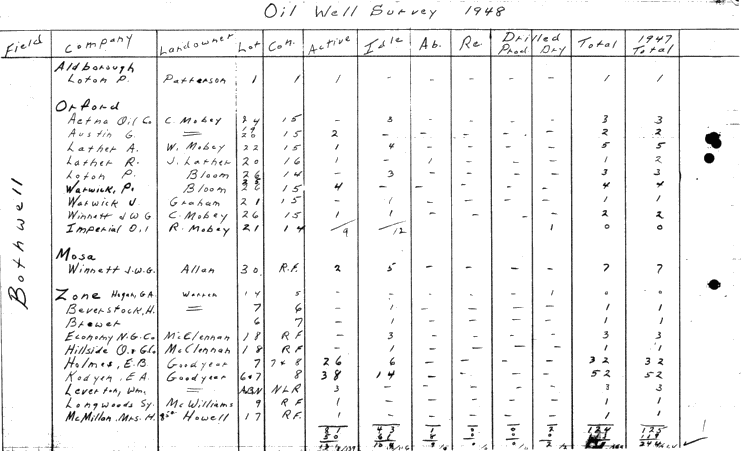 Oil Well Survey 1948
Field Company Landowner Lot Con. Active Idle Ab. Re. Drilled Prod Dry Total 1947 Total
Bothwell
Aldborough
Loton P. Patterson 1 1 1 - - - - - 1 1
Orford
Aetna Oil Co C. Mobey 24 15 - 3 - - - - 3 3
Austin G. = 19 20 15 2 - - - - - 2 2
Lather A. W. Mobey 22 15 1 4 - - - - 5 5
Lather R. J. Lather 20 16 1 - 1 - - - 1 2
Loton P. Bloom 26 14 - 3 - - - - 3 3
Warwick, P. Bloom 15 4 - - - - - 4 4
Warwick J. Graham 21 15 - 1 - - - - 1 1
Winnett J.W.G C. Mobey 26 15 1 1 - - - - 2 2
Imperial Oil R. Mobey 21 14 /9 /12 1 0 0
Mosa
Winnett J.W.G. Allan 30 R.F. 2 5 - - - - 7 7
Zone Hogan, G.A. Warren 14 5 - - - - - 1 0 0
Beverstock, H. = 7 6 - 1 - - - - 1 1
Brewer 6 7 - 1 - - - - 1 1
Economy N.G. Co McClennan 18 RF - 3 - - - - 3 3
Hillside O.&G.Co. McClennan 18 RF - 1 - - - - 1 1
Holmes, E.B. Goodyear 7 7&8 26 6 - - - - 32 32
Kodyen, E.A. Goodyear 6&7 8 38 14 - - - - 52 52
Leverton, Wm. = ABN NLR 3 - - - - - 3 3
Longwoods Sy. McWilliams 9 RF 1 - - - - - 1 1
McMillan, Mrs. H. Howell 17 R.F. 1 - - - - - 1 1
81 43 1 0 0 2 124 125